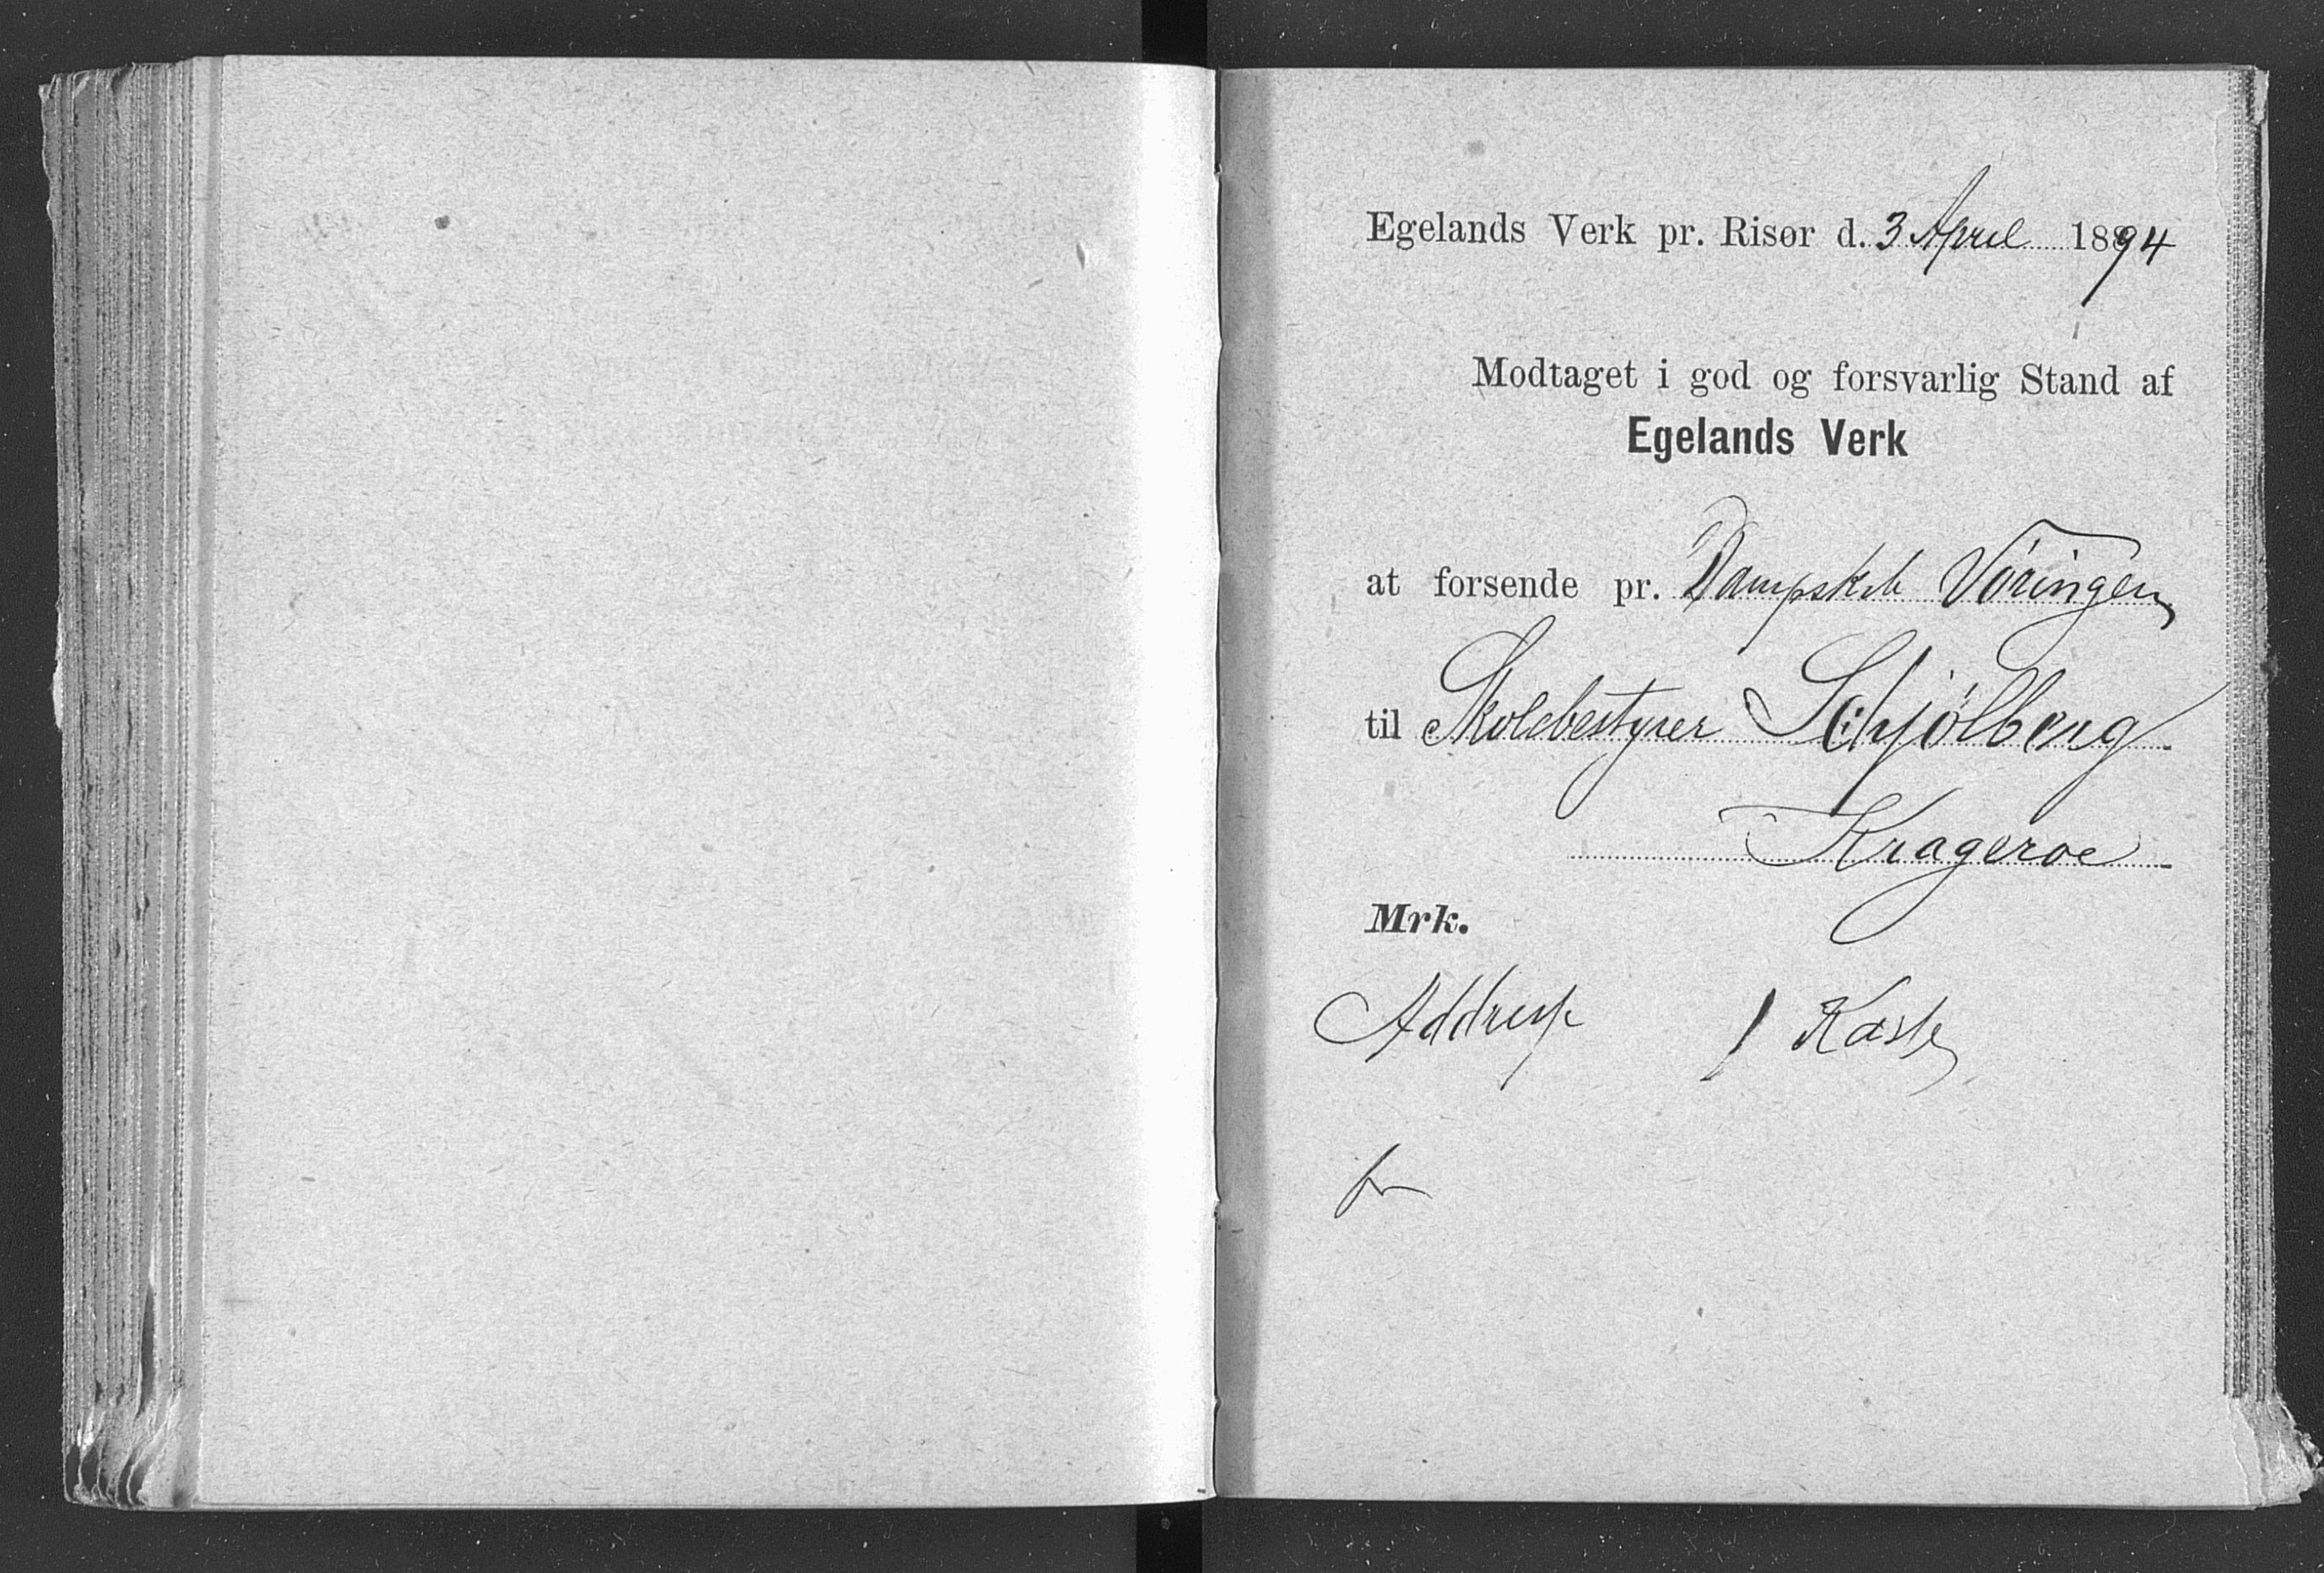 Egelands Verk pr. Risør d. 3 April 1894
Modtaget i god og forsvarlig Stand af
Egelands Verk
at forsende pr. Dampskib Vøringen
til Skolebestyrer Schjölberg
Krageroe
Mrk.
Addresse 1 Kasse